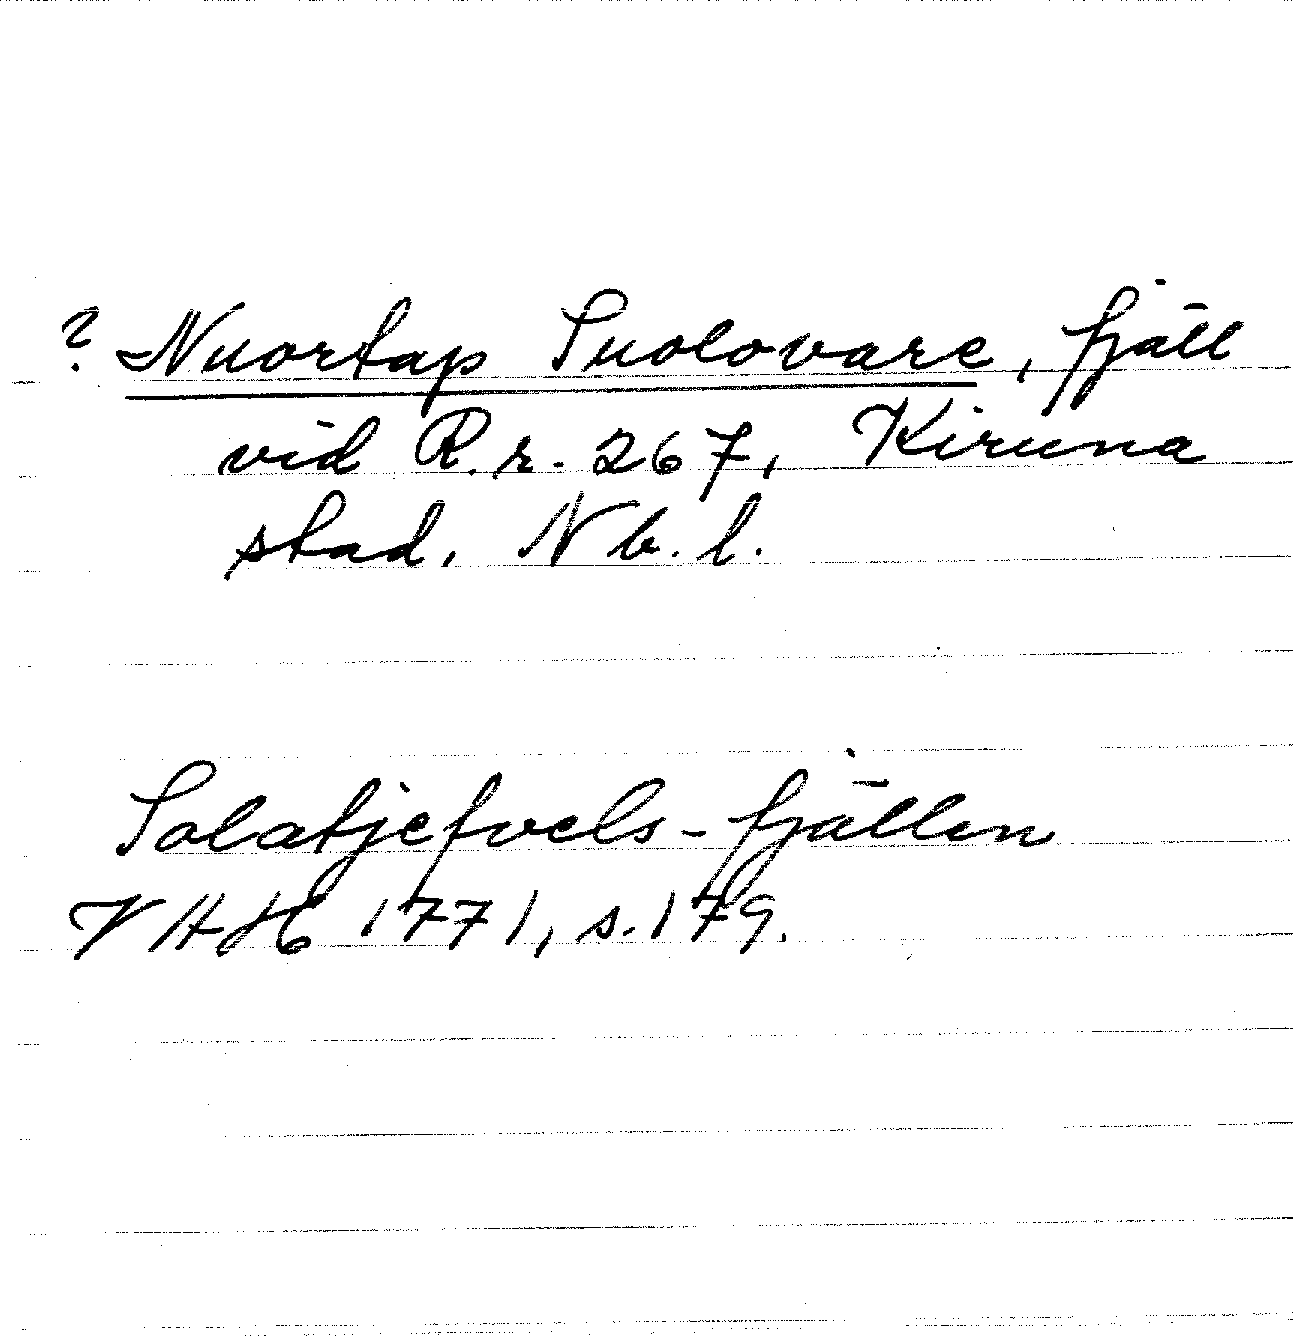 ? Nuortap Suolovare, fjäll
vid R.r. 267, Kiruna
stad. Nb.l.
Solatjefvels-fjällen
VHAH 1771, s. 179.